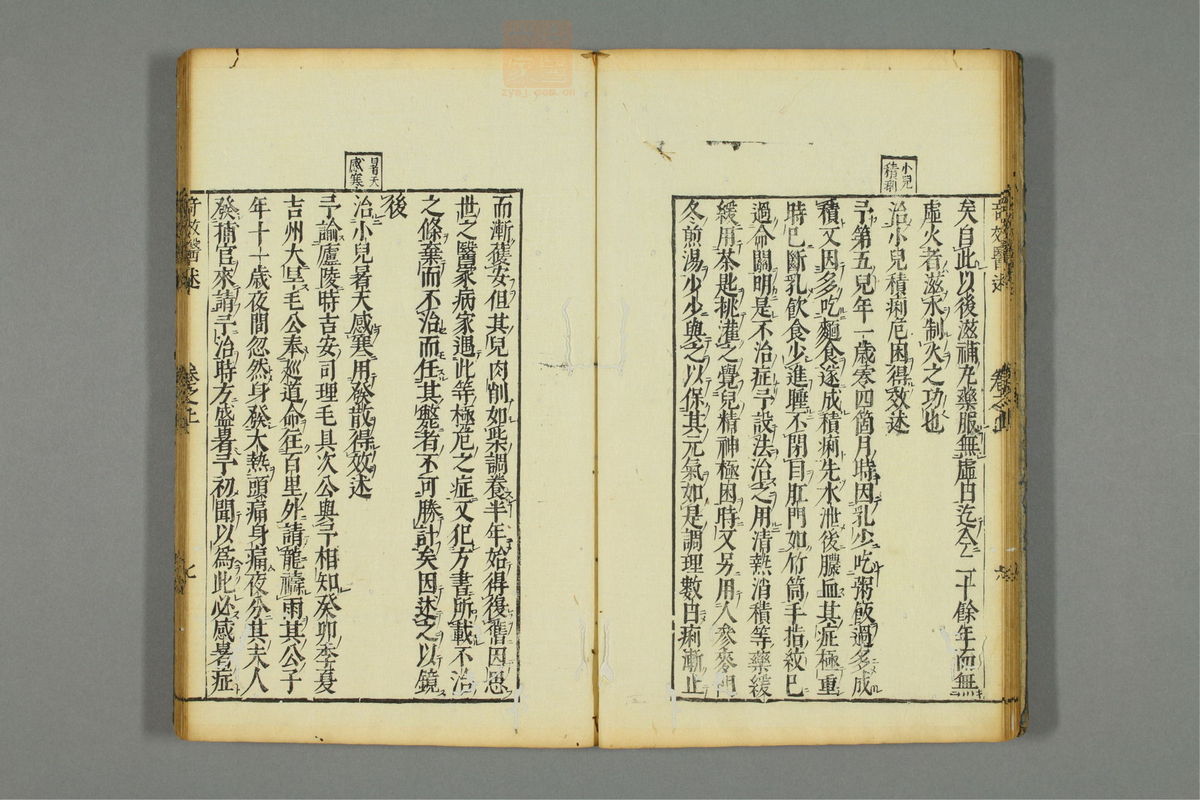 奇效醫述
卷之上
六
小兒
積痢
矣自此以後滋補丸藥服無虛日迄今二十餘年而無
虛火者滋水制火之功也
治小兒積痢危困得效述
予第五兒年一歲零四箇月時因乳少吃粥飯過多成
積又因多吃麵食遂成積痢先水泄後膿血其症極重
時已斷乳飲食少進睡不閉目肛門如竹筒手指紋已
過命關明是不治症予設法治之用清熱消積等藥緩
緩用茶匙挑灌之覺兒精神極困時又另用人參麥門
冬煎湯少少與之以保其元氣如是調理數日痢漸止
暑天
感寒
而漸獲安但其兒肉削如柴調養半年始得復舊因思
世之醫家病家遇此等極危之症又犯方書所載不治
之條棄而不治而任其斃者不可勝計矣因述之以鏡
後
治小兒暑天感寒用發散得效述
予諭廬陵時吉安司理毛具次公與予相知癸卯季夏
吉州大旱毛公奉巡道命往百里外請龍禱雨其公子
年十一歲夜間忽然身發大熱頭痛身痛夜分其夫人
發捕官來請予治時方盛暑予初聞以為此必感暑症
奇效醫述
卷之上
七